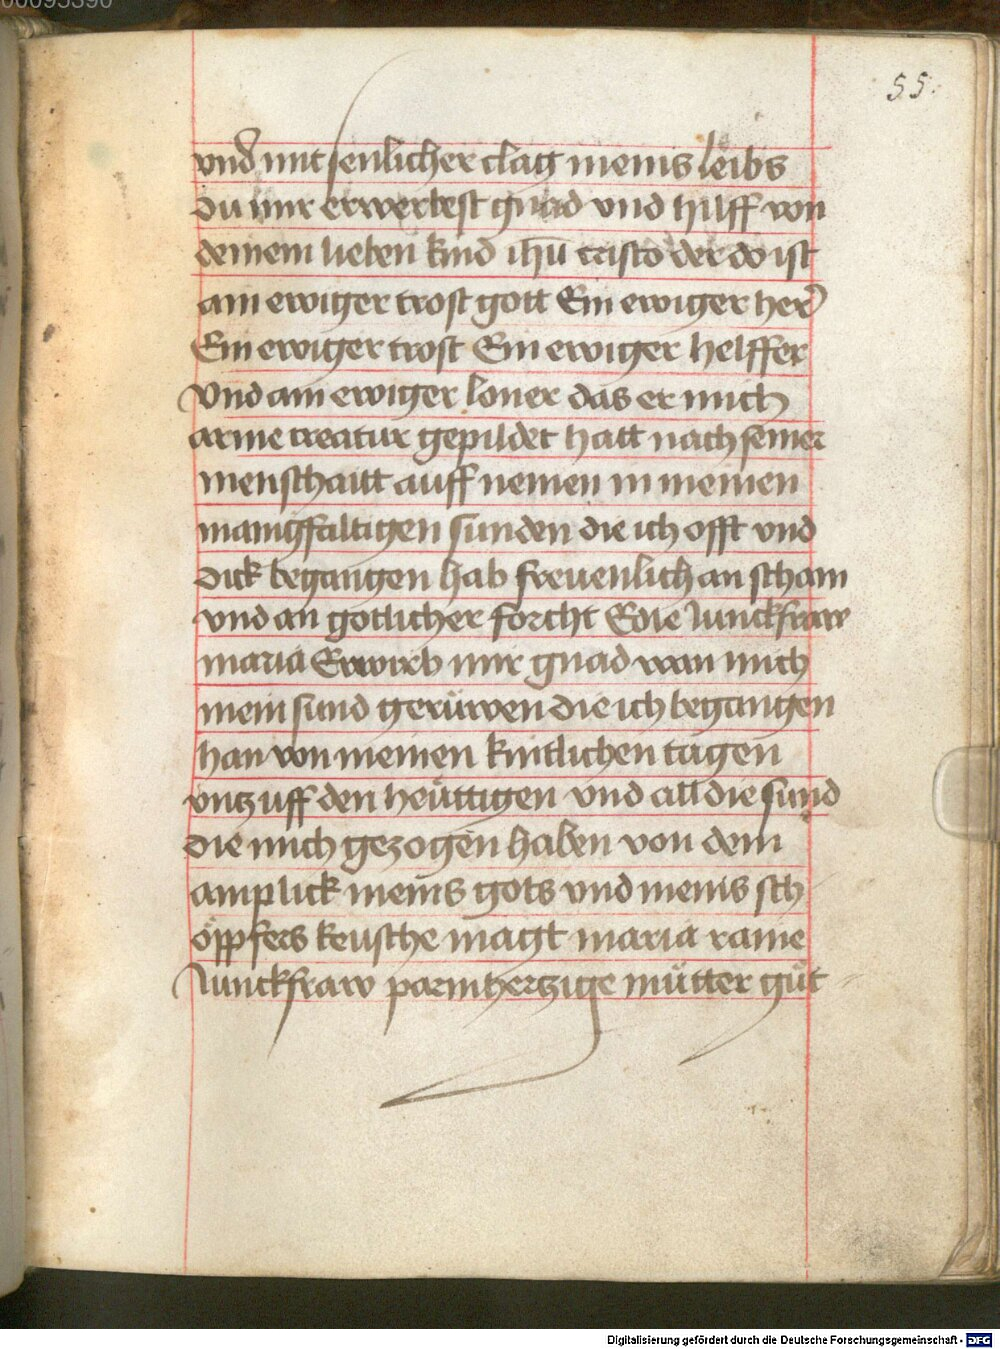 00095390
55.
vnd mit senlicher clag meins leibs
du mir erwerbest gnad vnd hilff von
deinem lieben kind ihū cristo der do ist
ain ewiger trost gott Ein ewiger her
Ein ewiger trost Ein ewiger helffer
Vnd ain ewiger loner das er mich
arme creatur gepildet hatt nach seiner
menschaitt auff nemen in meinen
manigfaltigen sunden die ich offt vnd
dick begangen hab freuenlich an scham
vnd an gotlicher forcht Edle Junckfraw
maria Erwirb mir gnad wan mich
mein sund gerüwen die ich begangen
han von meinen kintlichen tagen
vntz uff den heüttigen vnd all die sund
die mich gezogen haben von dem
anplick meins gots vnd meins sch
öppfers keusche magt maria raine
Junckfraw parmhertzige mütter güt
Digitalisierung gefördert durch die Deutsche Forschungsgemeinschaft - DFG